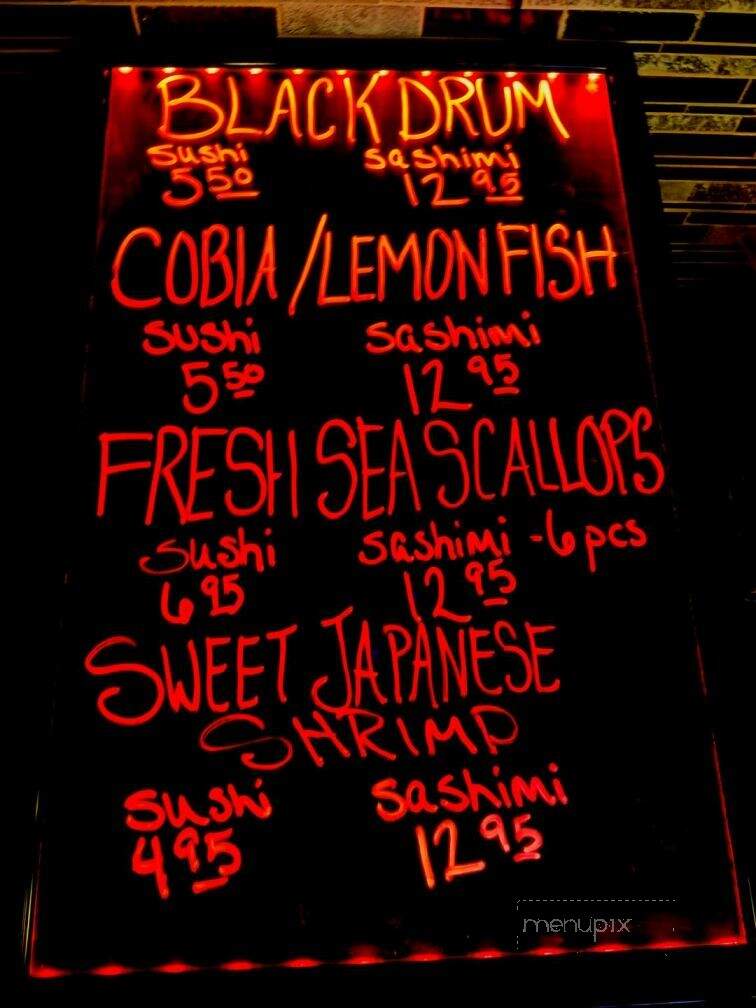 BLACK DRUM
sushi sashimi
5 50 12 95
COBIA/LEMON FISH
sushi sashimi
5 50 12 95
FRESH SEA SCALLOPS
sushi sashimi - 6 pcs
6 95 12 95
SWEET JAPANESE
SHRIMP
sushi sashimi
4 95 12 95
menupix